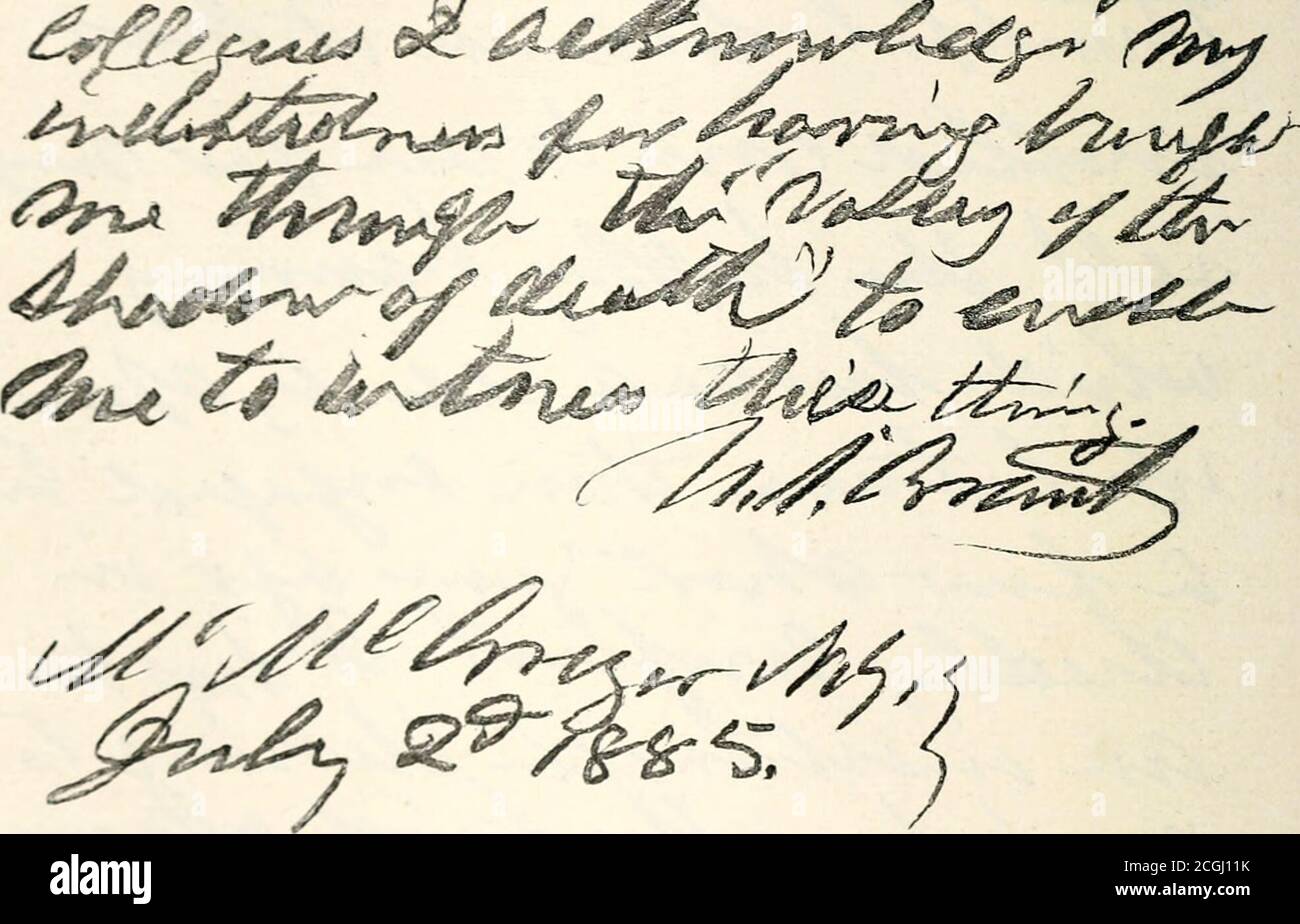 collegues I acknowledge my
indebtedness for having brough
me through the "valley of the
shadow of death" to enable
me to witness these things.
U. S. Grant
Mt McGregor N.Y.
July 2d 1885.
alamy
Image ID: 2CGJ11K
www.alamy.com